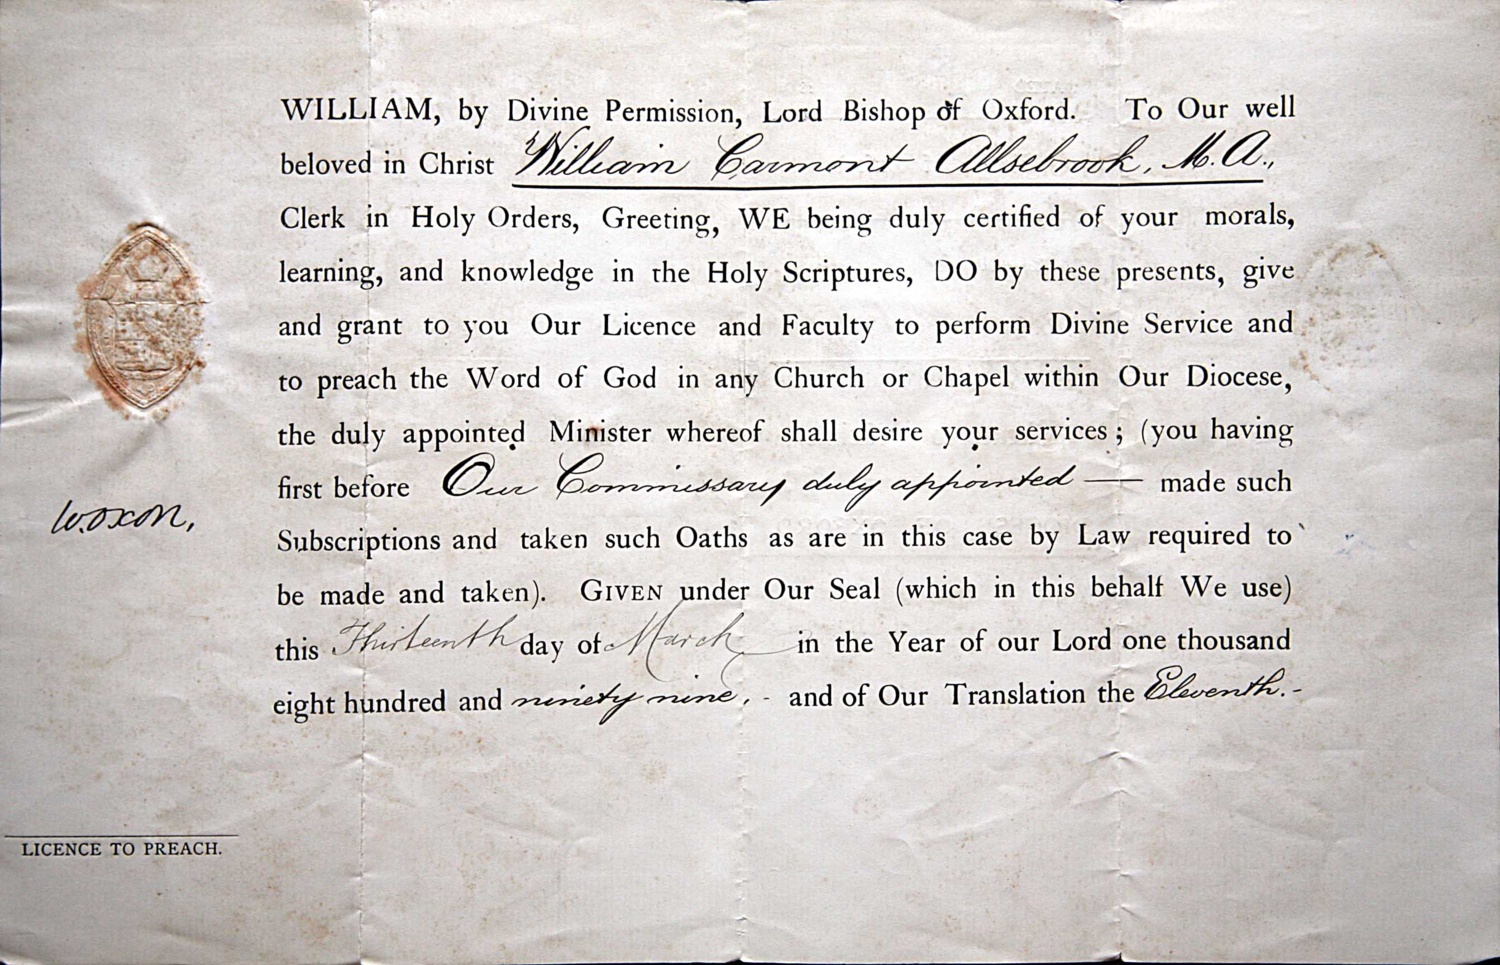 WILLIAM, by Divine Permission, Lord Bishop of Oxford. To Our well
beloved in Christ William Carmont Allsebrook, M.A.,
Clerk in Holy Orders, Greeting, WE being duly certified of your morals,
learning, and knowledge in the Holy Scriptures, DO by these presents, give
and grant to you Our Licence and Faculty to perform Divine Service and
to preach the Word of God in any Church or Chapel within Our Diocese,
the duly appointed Minister whereof shall desire your services; (you having
first before Our Commissary duly appointed — made such
Subscriptions and taken such Oaths as are in this case by Law required to
be made and taken). GIVEN under Our Seal (which in this behalf We use)
this Thirteenth day of March in the Year of our Lord one thousand
eight hundred and ninety nine, - and of Our Translation the Eleventh. -
W. OXON,
LICENCE TO PREACH.